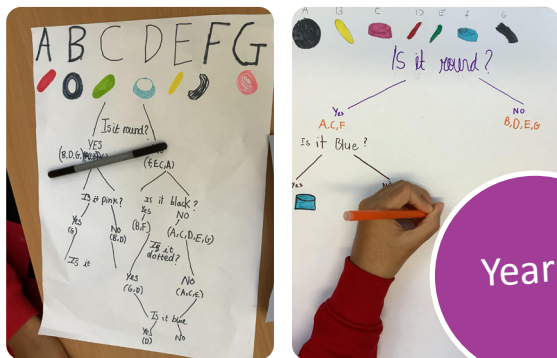 A B C D E F G
Is it round?
YES
(B, D, G)
(F, E, C, A)
Is it pink?
Is it black?
Yes
NO
Yes
(G)
No
(B, D)
(B, F)
(A, C, D, E, G)
Is it
dotted?
Is it
Yes
(G, D)
No
(A, C, E)
Is it blue
Yes
(D)
No
A B C D E F G
Is it round?
Yes
A, C, F
NO
B, D, E, G
Is it Blue?
Yes
Year